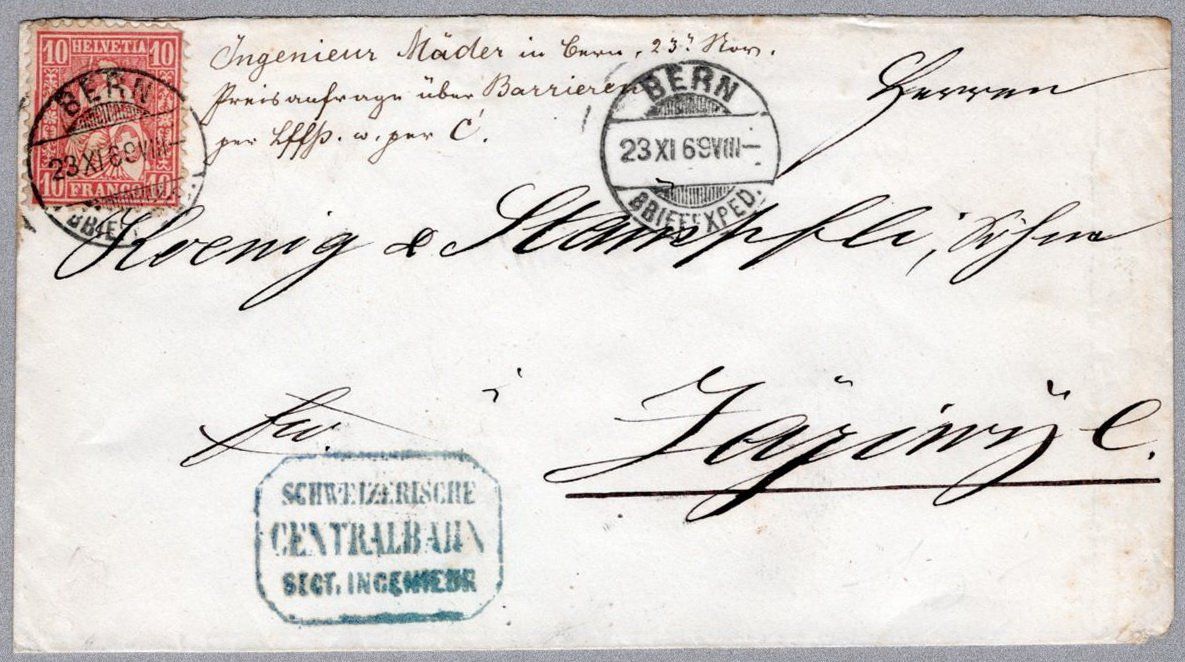 10 HELVETIA 10
10 FRANCO 10
BERN
23 XI 69 VIII –
BRIEF
Ingenieur Mäder in Bern, 23. Nov.
Preisanfrage über Barrieren
per u. per C.
BERN
23 XI 69 VIII –
BRIEFEXPED.
Herren
Koenig & Stämpfli, Söhne
frco.
SCHWEIZERISCHE
CENTRALBAHN
SECT. INGENIEUR